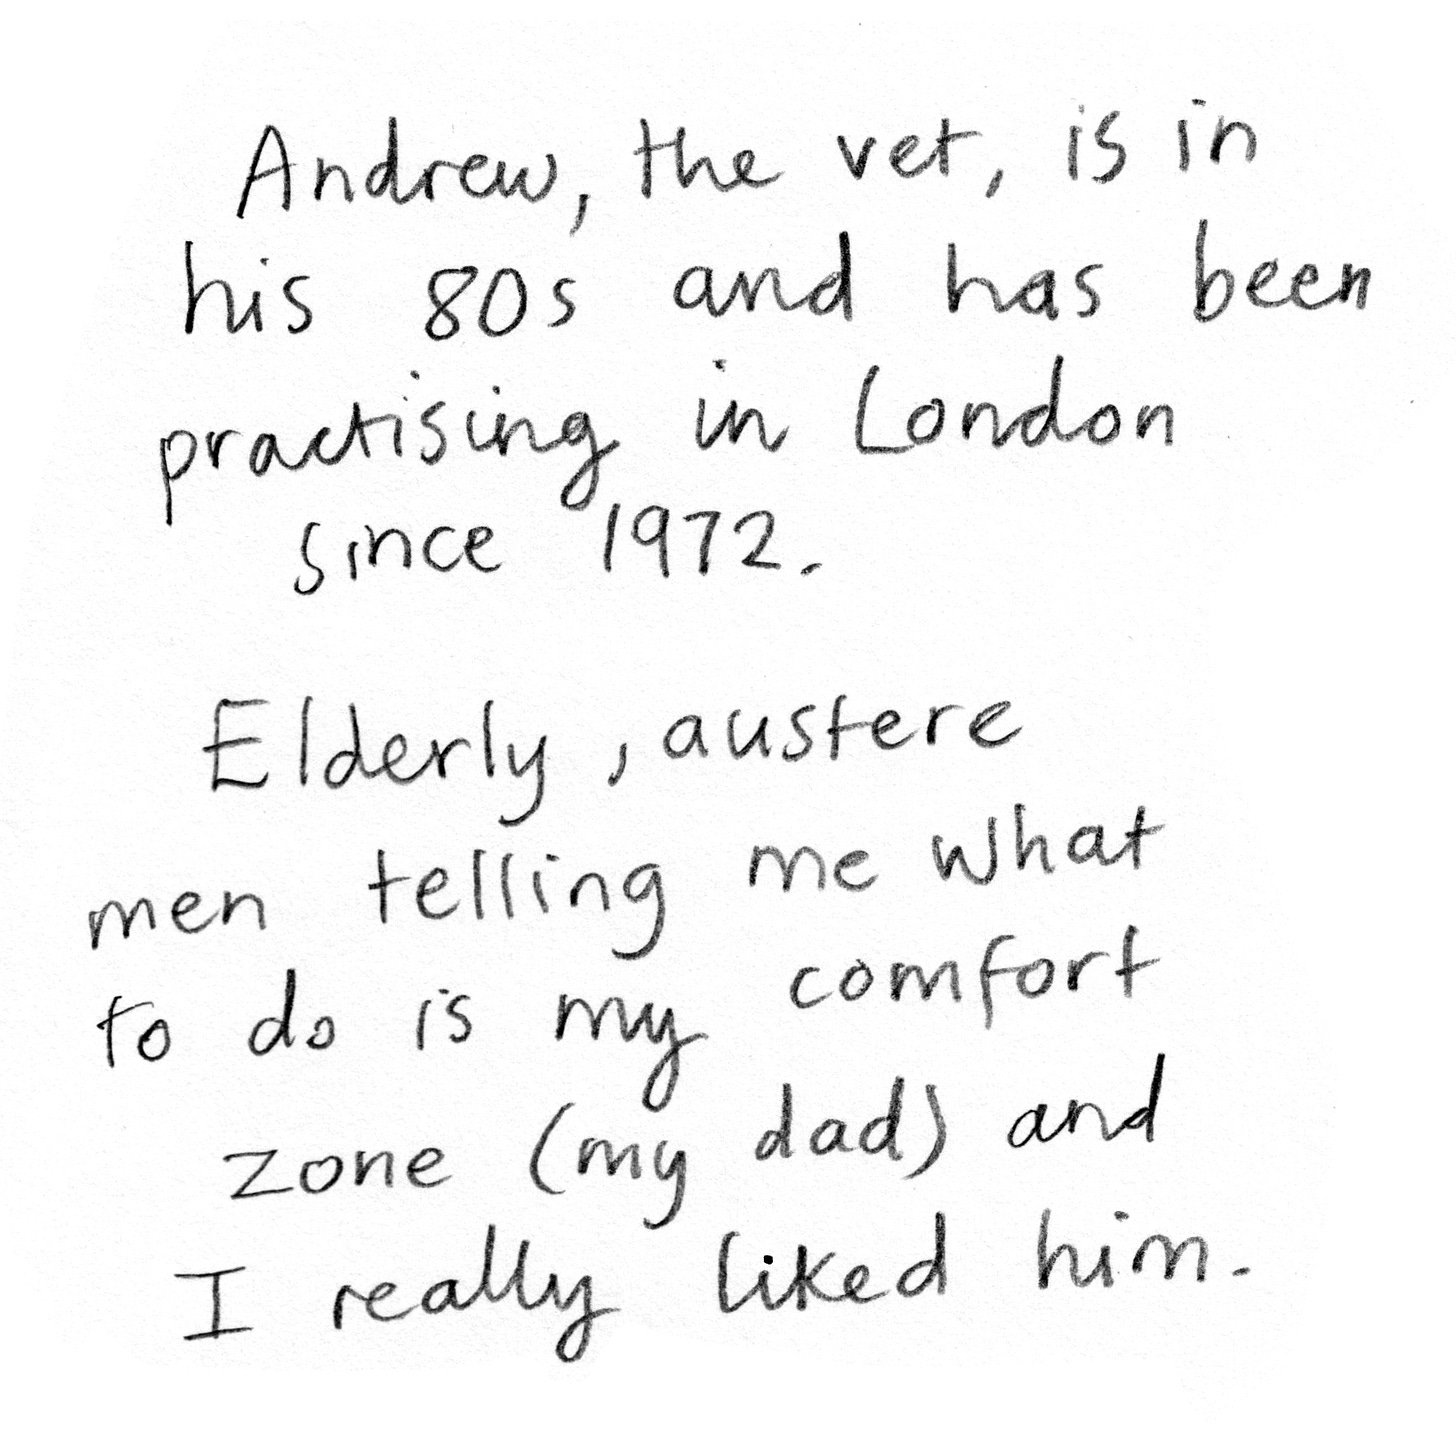 Andrew, the vet, is in
his 80s and has been
practising in London
since 1972.
Elderly, austere
men telling me what
to do is my comfort
zone (my dad) and
I really liked him.